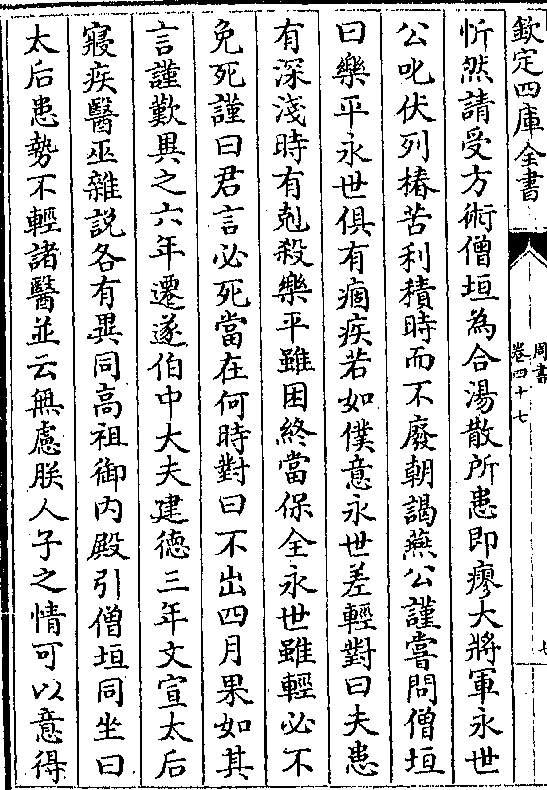 欽定四庫全書
周書
卷四十七
七
忻然請受方術僧垣為合湯散所患即瘳大將軍永世
公叱伏列椿苦利積時而不廢朝謁燕公謹嘗問僧垣
曰樂平永世俱有痼疾若如僕意永世差輕對曰夫患
有深淺時有剋殺樂平雖困終當保全永世雖輕必不
免死謹曰君言必死當在何時對曰不出四月果如其
言謹歎異之六年遷遂伯中大夫建德三年文宣太后
寢疾醫巫雜説各有異同高祖御內殿引僧垣同坐曰
太后患勢不輕諸醫並云無慮朕人子之情可以意得